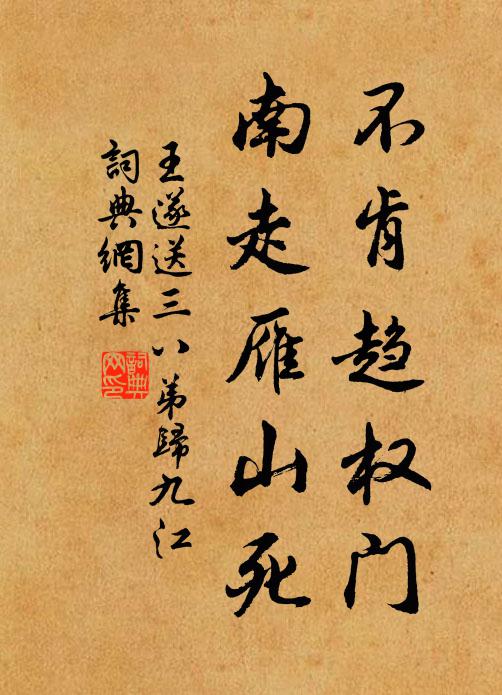 不肯趋权门
南走雁山死
王遂送三八弟歸九江
詞典網集
詞典网印